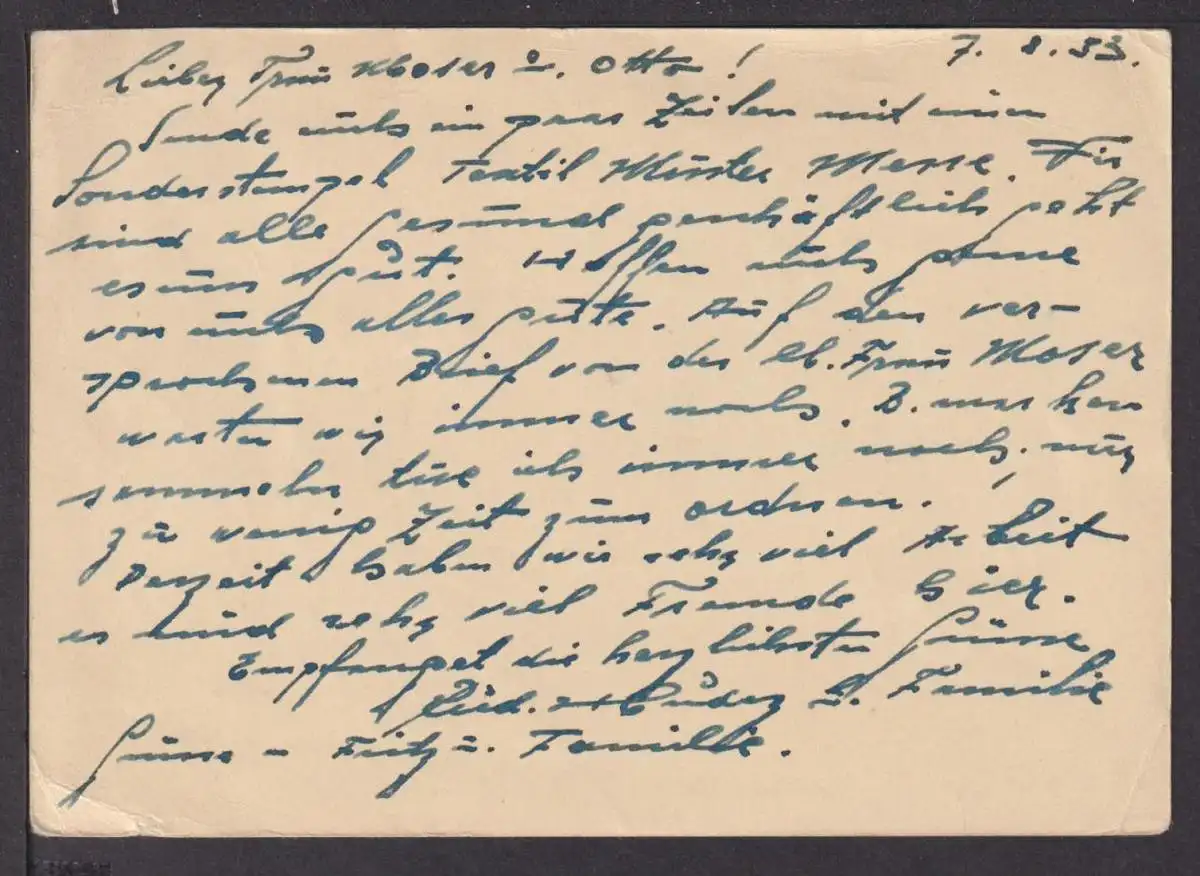 Liebe Frau Moser u. Otto! 7. 8. 53.
Sende euch ein paar Zeilen mit einen
Sonderstempel Textil Muster Messe. Wir
sind alle gesund geschäftlich geht
es uns gut. Hoffen euch gerne
von euch alles gute. Auf den ver-
sprochenen Brief von der lb. Frau Moser
warten wir immer noch. B. marken
sammeln tue ich immer noch, nur
zu wenig Zeit zum ordnen.
Derzeit haben wir sehr viel Arbeit
es sind sehr viel Fremde hier.
Empfanget die herzlichsten Grüsse
u. Familie
Grüsse Fritz u. Familie.